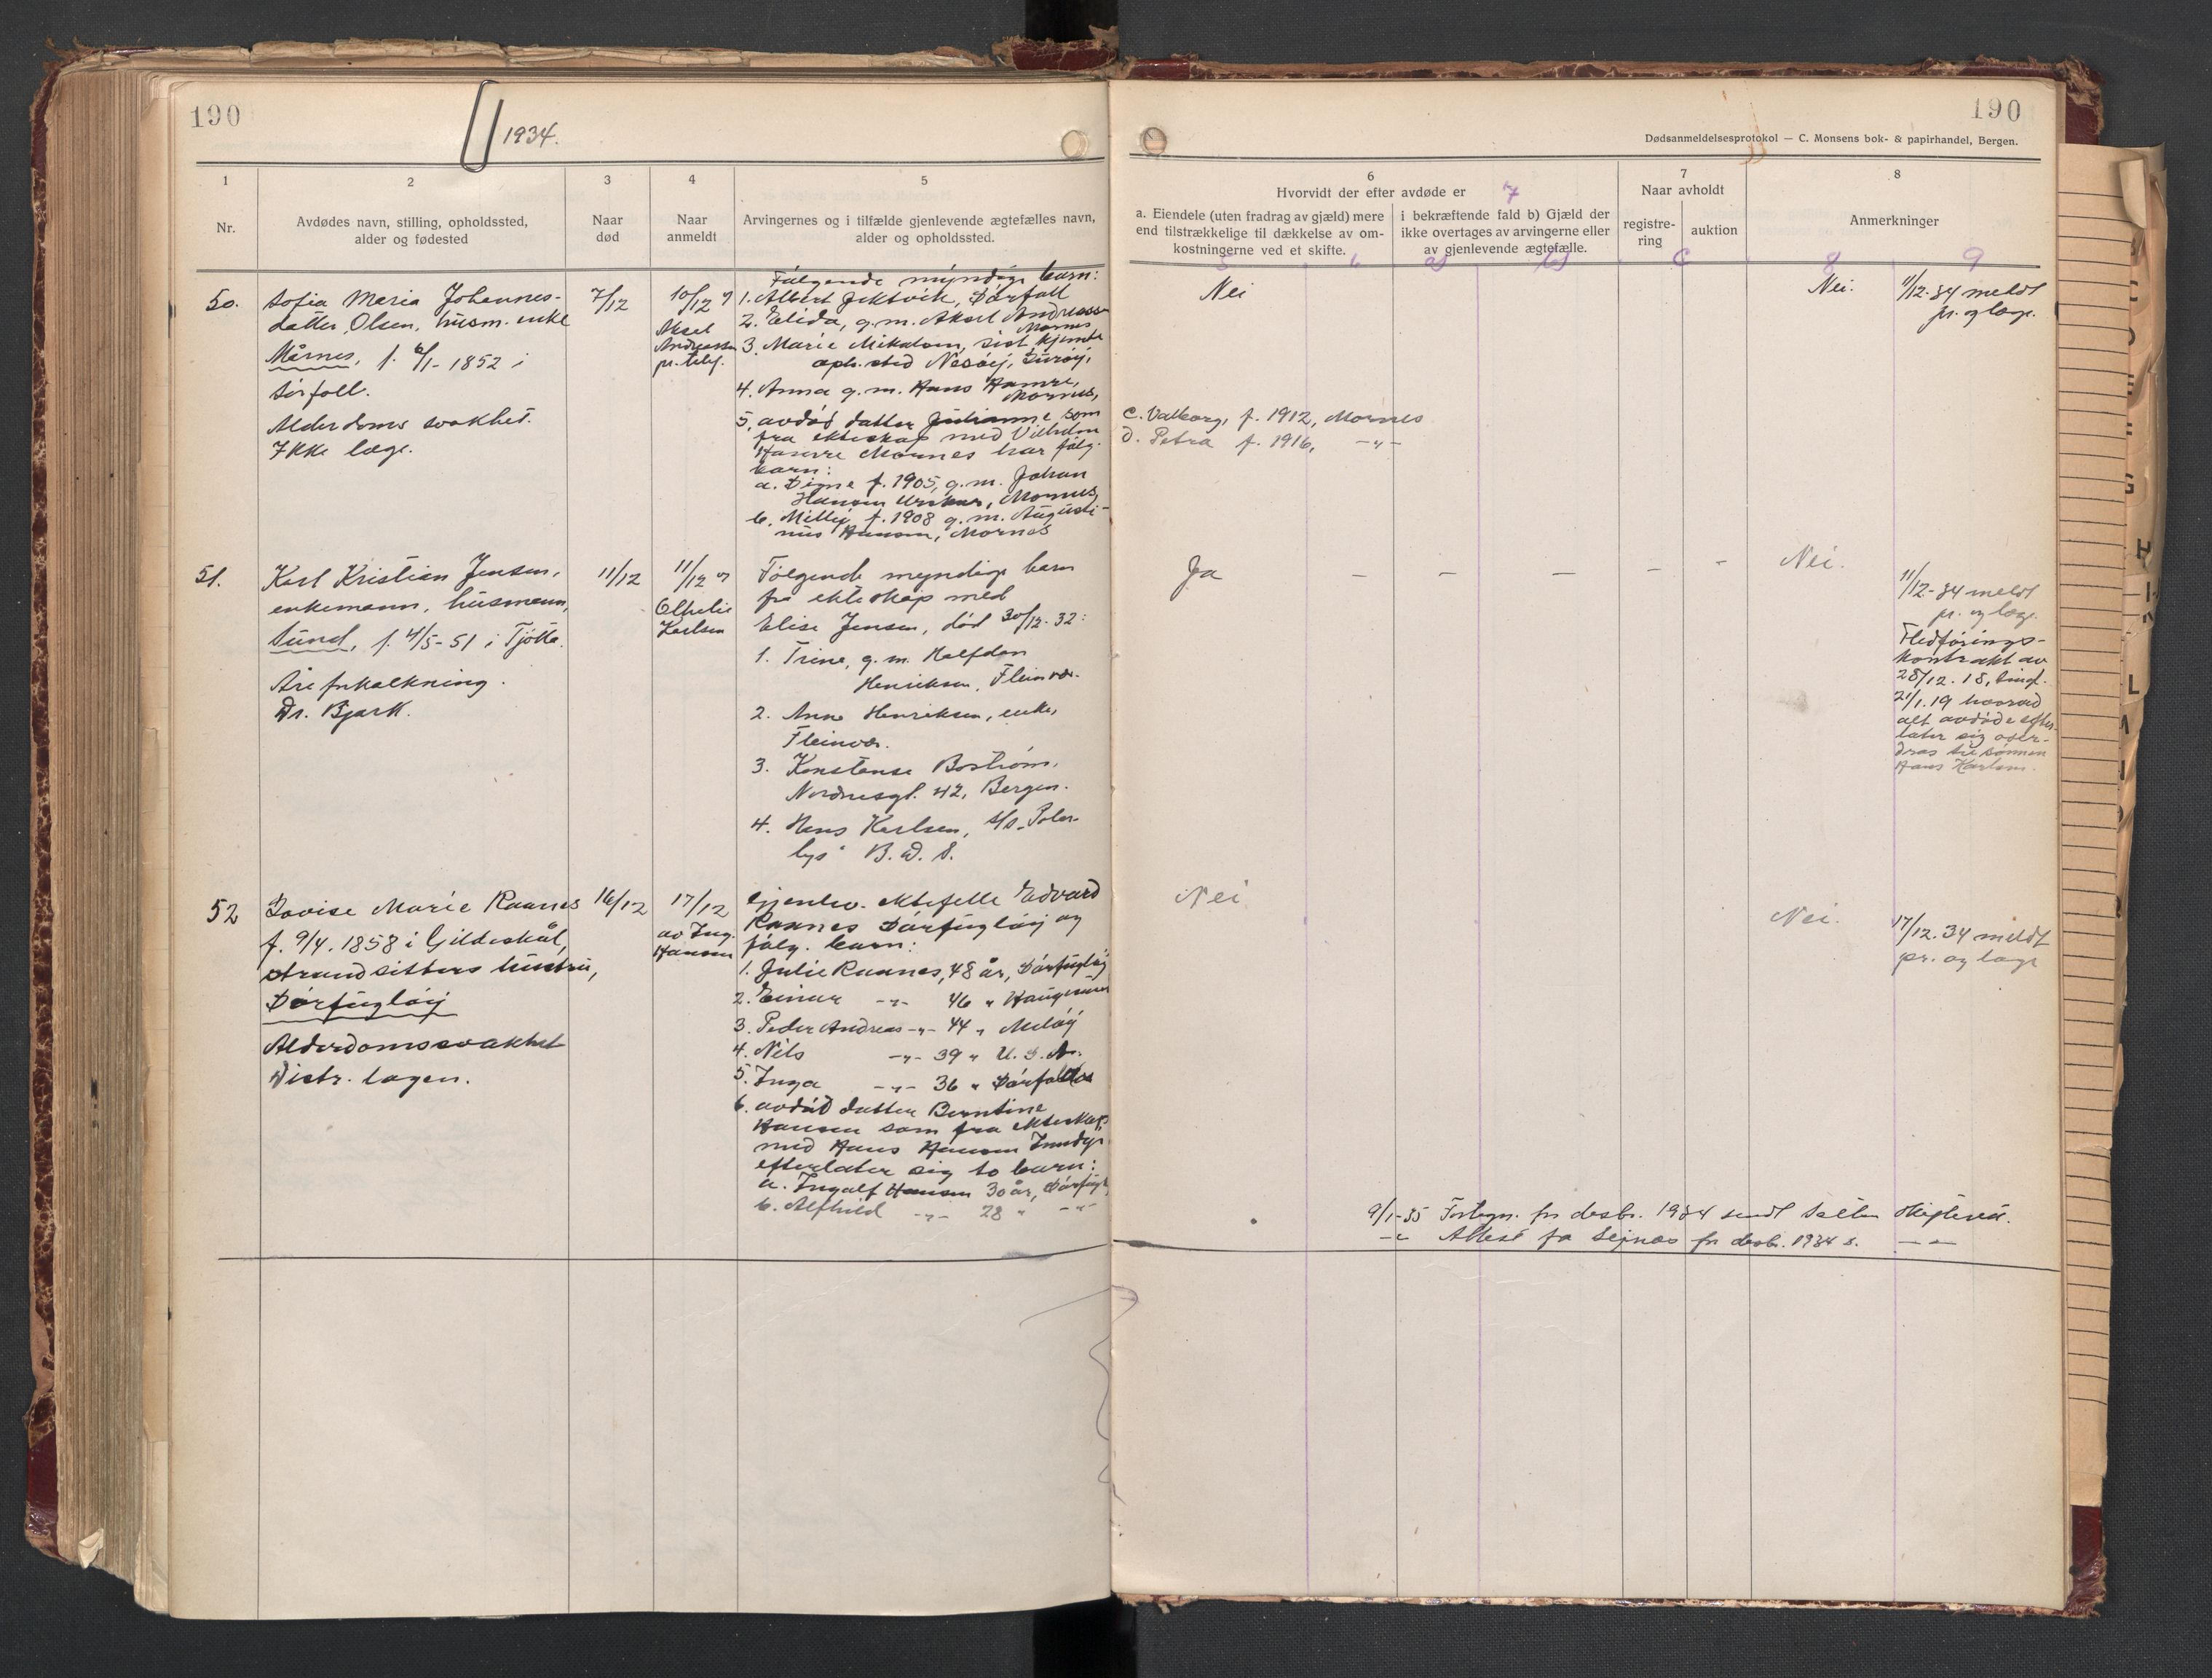 190
1934.
1
Nr.
2
Avdødes navn, stilling, opholdssted,
alder og fødested
3
Naar
død
4
Naar
anmeldt
5
Arvingernes og i tilfælde gjenlevende ægtefælles navn,
alder og opholdssted.
50.
Sofia Maria Johannes-
datter Olsen, husm. enke
Mårnes, f. /1-1852 i
Sørfoll.
Alderdoms svakhet.
Ikke læge.
7/12
10/12 av
Aksel
Andreassen
pr. telef.
Følgende myndige barn:
1. Albert Jektvik, Sørfoll
2. Elida, g.m. Aksel Andreassen
Mornes
3. Marie Mikalsen, sist kjente
oph.sted Nesøy, Lurøy,
4. Anna g.m. Hans Hamre,
Mornes,
5. avdød datter Julianne som
fra ekteskap med Vilhelm
Hamre Mornes har følg.
barn:
a. Signe f. 1905, g.m. Johan
Hansen, Mornes,
b. Milly, f. 1908 g.m. Augusti-
nus Hansen, Mornes
51.
Karl Kristian Jensen,
enkemann, husmann,
Sund, f. 4/5-51 i Tjøtta.
Åreforkalkning.
Dr. Bjark.
11/12
11/12 av
Othelie
Karlsen
Følgende myndige barn
fra ekteskap med
Elise Jensen, død 30/12-32:
1. Trine, g.m. Halfdan
Henriksen, Fleinvær.
2. Anna Henriksen, enke,
Fleinvær.
3. Konstanse Boström,
Nordnesgt. 42, Bergen.
4. Hans Karlsen, s/s "Polar-
lys" B.D.S.
52
Lovise Marie Raanes
f. 9/4.1858 i Gildeskål,
strandsitters hustru,
Sørfugløy
Alderdomssvakhet
Distr. lægen.
16/12
17/12
av Ing.
Hansen
Gjenlev. ektefelle Edvard
Raanes Sørfugløy og
følg. barn:
1. Julie Raanes, 48 år, Sørfugløy
2. Einar -"- 46 " Haugesund
3. Peder Andreas -"- 44 " Meløy
4. Nils -"- 39 " U.S.A.
5. Inga -"- 36 "
6. avdød datter Berntine
Hansen som fra ekteskap
med Hans Hansen Inndyr
efterlater sig to barn:
a. Ingalf Hansen 30 år, Sørfugl.
b. Alfhild -"- 28 " -"-
190
Dødsanmeldelsesprotokol — C. Monsens bok- & papirhandel, Bergen.
6
Hvorvidt der efter avdøde er 7
a. Eiendele (uten fradrag av gjæld) mere
end tilstrækkelige til dækkelse av om-
kostningerne ved et skifte.
i bekræftende fald b) Gjæld der
ikke overtages av arvingerne eller
av gjenlevende ægtefælle.
7
Naar avholdt
registre-
ring
auktion
8
Anmerkninger
5 6 a) b) c 8 9
Nei
Nei.
11/12-34 meldt
pr. og læge.
c. Valborg, f. 1912, Mornes
d. Petra f. 1916, -"-
Ja - - - - - Nei.
11/12-34 meldt
pr. og læge.
Fledførings-
kontrakt av
28/12.18, tingl.
21/1.19 hvorved
alt avdøde efter-
later sig over-
dras til sønnen
Hans Karlsen.
Nei
Nei.
17/12.34 meldt
pr. og læge
9/1-35 Fortegn. for desbr. 1934 sendt Salten skifterett.
-"- Attest fra for desbr. 1934 s. -"-